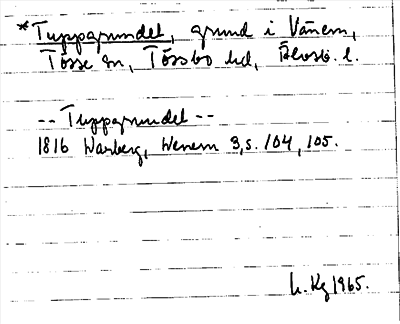 *Tuppgrundet, grund i Vänern,
Tösse sn, Tössbo hd, Älvsb. l.
-- Tuppgrundet --
1816 Warberg, Wenern 3, s. 104, 105.
L. Kg 1965.